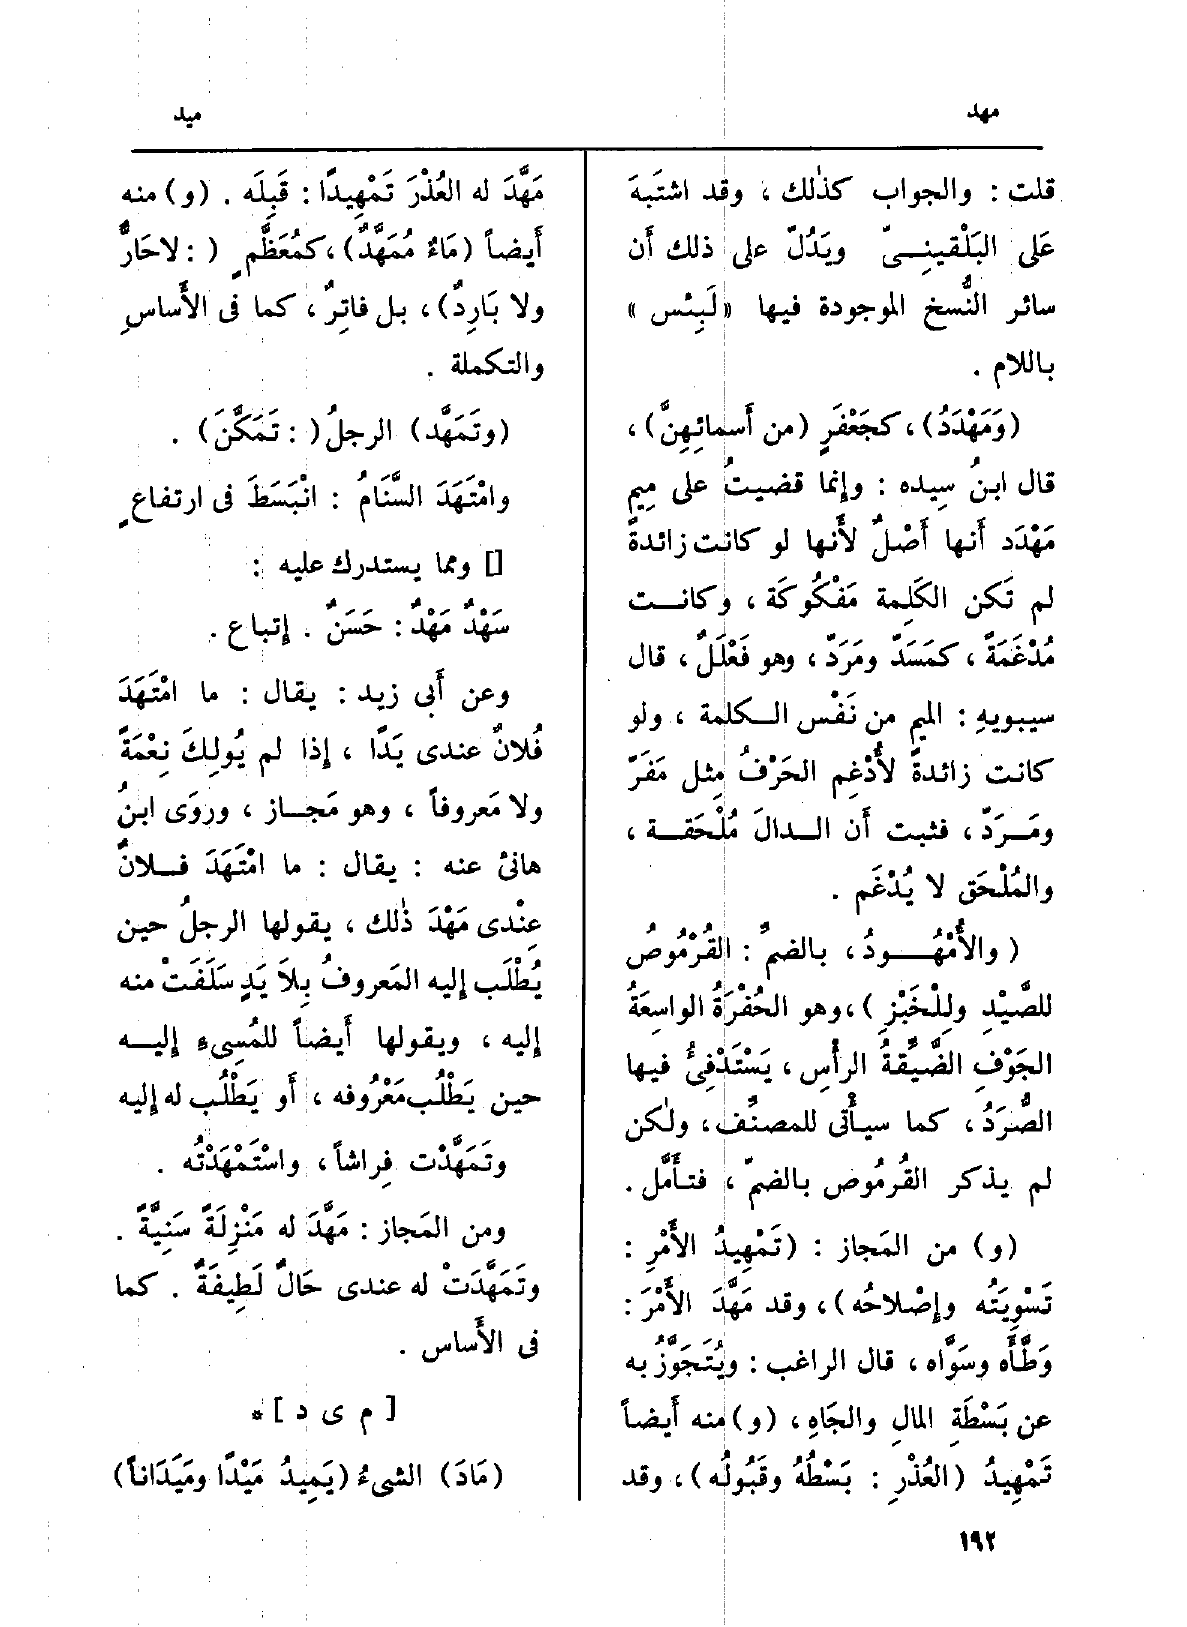 مهد
ميد
قلت : والجواب كذٰلك ، وقد اشتَبهَ
عَلى البَلْقينِــىّ ويَدُلّ على ذلك أن
سائر النُّسخ الموجودة فيها «لَبِئس »
باللام .
(وَمَهْدَدُ) ، كجَعْفَرٍ (من أَسمائِهِنَّ) ،
قال ابنُ سِيده : وإنما قضيتُ على مِيمِ
مَهْدَد أَنها أَصْلٌ لأَنها لو كانت زائدةً
لم تَكن الكَلِمة مَفْكُوكَة ، وكانــت
مُدْغَمَةً ، كمَسَدّ ومَرَدّ ، وهو فَعْلَلٌ ، قال
سيبويهِ : الميم من نَفْس الــكلمة ، ولو
كانت زائدةً لأُدْغِم الحَرْفُ مِثل مَفَرّ
ومَــرَدّ ، فثبت أن الــدالَ مُلْحَقــة ،
والمُلْحَق لا يُدْغَم .
( والأُمْهُــــودُ ، بالضمِّ : القُرْمُوصُ
للصَّيْدِ وللْخَبْزِ ) ،وهو الحُفْرَةُ الواسِعَةُ
الجَوْفِ الضَّيِّقةُ الرأْسِ ، يَسْتَدْفِئُ فيها
الصُّرَدُ ، كما سيأْتى للمصنِّف ، ولٰكن
لم يذكر القُرمُوص بالضمّ ، فتأَمَّل .
(و) من المَجاز : (تَمْهِيدُ الأَمْرِ :
تَسْوِيَتُه وإِصْلاحُه) ، وقد مَهَّدَ الأَمْرَ :
وَطَّأَه وسَوَّاه ، قال الراغب : ويُتَجَوَّزُ به
عن بَسْطَةِ المالِ والجَاهِ ، (و) منه أَيضاً
تَمْهِيدُ (العُذْرِ : بَسْطُهُ وقَبُولُه) ، وقد
مَهَّدَ له العُذْرَ تَمْهِيدًا : قَبِلَه . (و) منه
أَيضاً (مَاءٌ مُمَهَّدٌ) ،كمُعَظَّمٍ ( : لاحَارٌّ
ولا بَارِدٌ) ، بل فاتِرٌ ، كما فى الأَساسِ
والتكملة .
(وتَمَهَّد) الرجلُ( : تَمَكَّنَ) .
وامْتَهَدَ السَّنَامُ : انْبَسَطَ فى ارتفاعٍ
[] ومما يستدرك عليه :
سَهْدٌ مَهْدٌ : حَسَنٌ . إِتباع .
وعن أَبى زيد : يقال : ما امْتَهَدَ
فُلانٌ عندى يَدًا ، إِذا لم يُولِكَ نِعْمَةً
ولا مَعروفاً ، وهو مَجــاز ، وروَى ابنُ
هانئ عنه : يقال : ما امْتَهَدَ فــلانٌ
عِنْدى مَهْدَ ذٰلك ، يقولها الرجلُ حين
يُطْلَب إِليه المَعروفُ بِلاَ يَدٍ سَلَفَتْ منه
إليه ، ويقولها أَيضاً للمُسِىءِ إِليــه
حين يَطْلُب مَعْرُوفه ، أَو يَطْلُب له إِليه
وتَمَهَّدْت فِراشاً ، واسْتَمْهَدْتُه .
ومن المَجاز : مَهَّدَ له مَنْزِلَةً سَنِيَّةً .
وتَمَهَّدَتْ له عندى حَالٌ لَطِيفَةٌ . كما
فى الأَساس .
[ م ى د ] *
(مَادَ) الشىءُ (يَمِيدُ مَيْدًا ومَيَدَاناً)
١٩٢